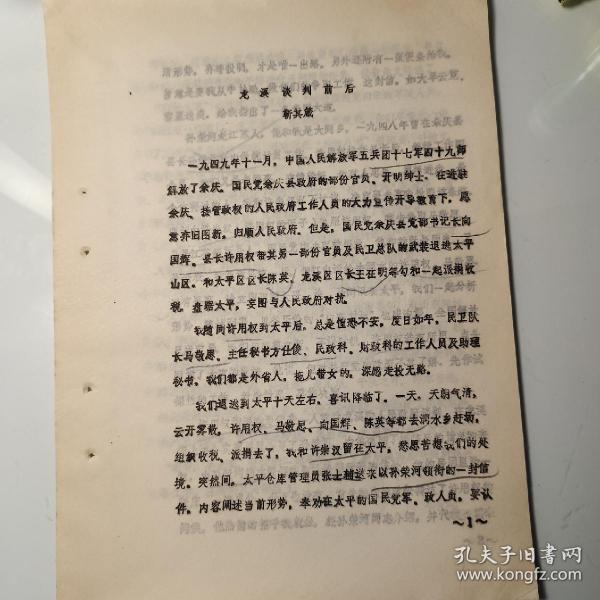 龙溪谈判前后
靳其箴
一九四九年十一月，中国人民解放军五兵团十七军四十九师
解放了余庆。国民党余庆县政府的部份官员、开明绅士，在进驻
余庆、接管政权的人民政府工作人员的大力宣传开导教育下，愿
意弃旧图新，归顺人民政府。但是，国民党余庆县党部书记长向
国辉、县长许用权带其另一部份官员及民卫总队的武装退进太平
山区，和太平区区长陈英、龙溪区区长王在明等勾和一起派捐收
税，盘踞太平，妄图与人民政府对抗。
我随同许用权到太平后，总是惶恐不安，度日如年，民卫队
长马敬恩、主任秘书方仕俊、民政科、财政科的工作人员及助理
秘书，我们都是外省人，拖儿带女的，深感走投无路。
我们退逃到太平十天左右，喜讯降临了。一天，天朗气清，
云开雾散，许用权、马敬恩、向国辉、陈英等都去满水乡赶场，
组织收税、派捐去了，我和许崇汉留在太平，愁思苦想我们的处
境。突然间，太平仓库管理员张士辅送来以孙荣河领衔的一封信
件，内容阐述当前形势，奉劝在太平的国民党军、政人员，要认
～1～
孔夫子旧书网
www.kongfz.com